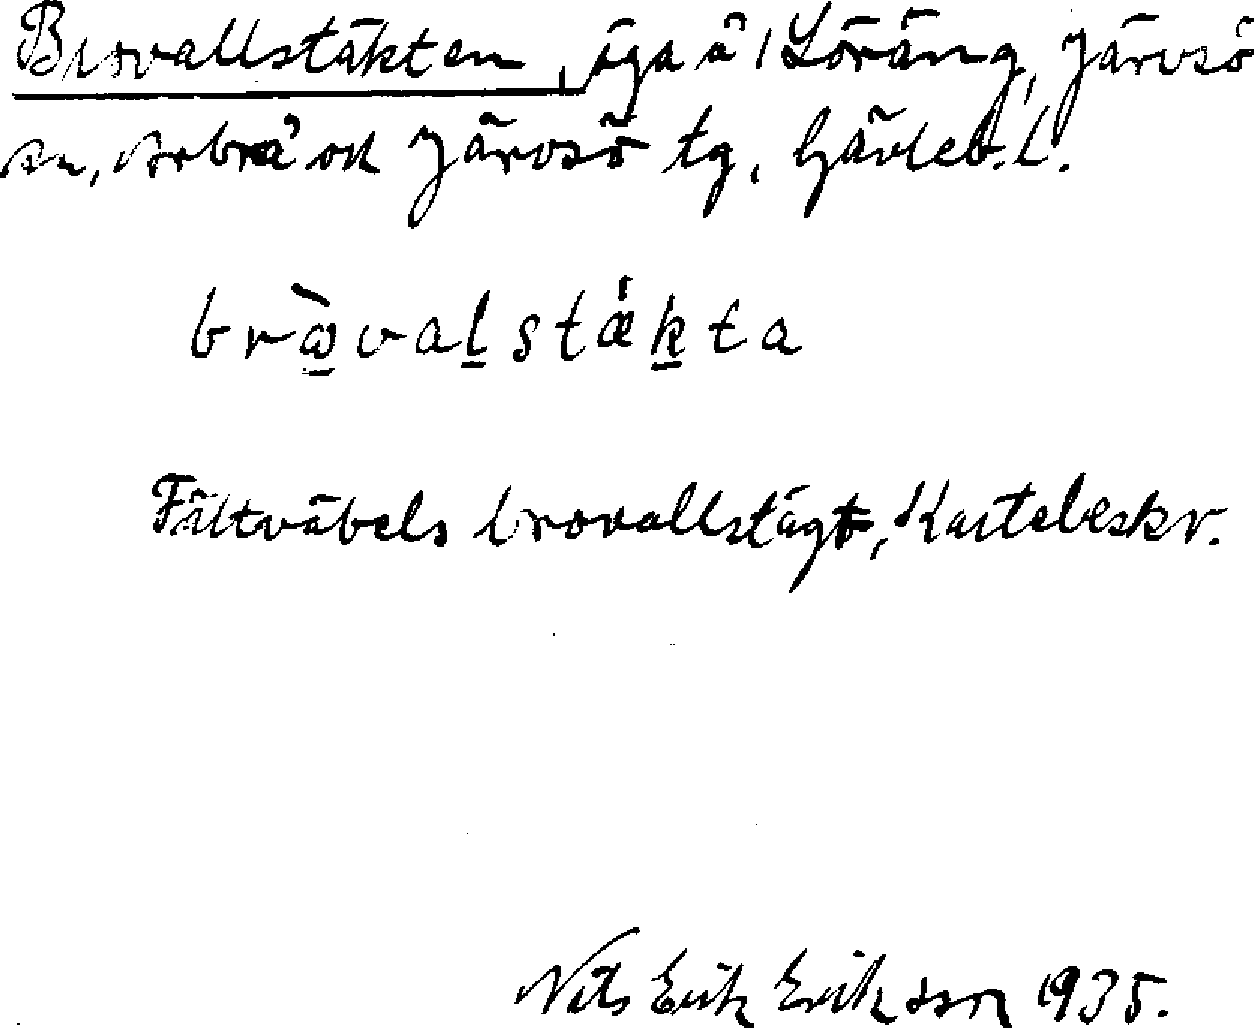 Brovallstäkten, äga å 1 Löräng, Järvsö
sn, Arbrå och Järvsö tg, Gävleb. l.
brò̱vaḻstǽḵta
Fältväbels brovallstägt, Kartebeskr.
Nils Erik Eriksson 1935.